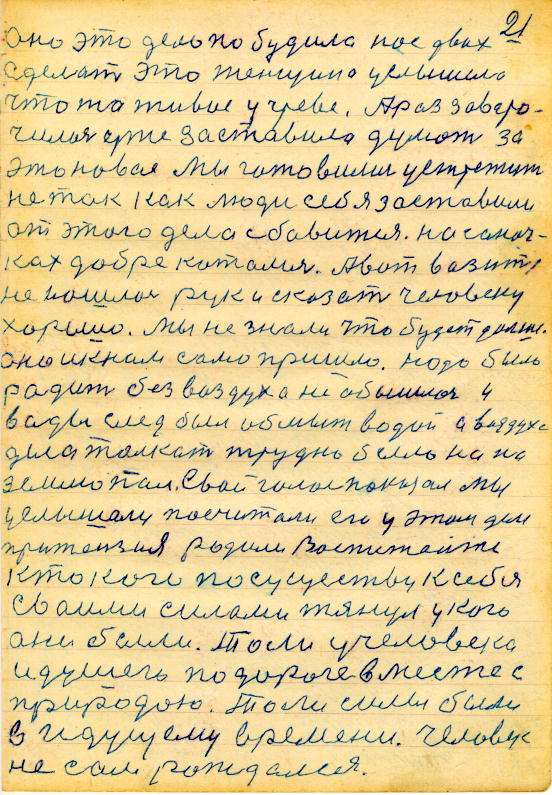 21
оно это дело побудила нас двах
сделат это женщина услышала
что та живое у чреве. А раз заверо-
чилося тже заставила думат за
это новая мы готовилися устретит
не так как люди себя заставили
от этого дела сбавится. на саноч-
ках добре катался. А вот возит
не пошлося рук и сказат человеку
хорошо. мы не знали что будет дальше.
оно и к нам само пришло. надо было
радит без воздуха не обошлося и
вады след был обмыт водой а воздуха
дела толкат трудно было на на
землю пал. Свой голос показал мы
услышали посчитали его у этом деле
притензия родили воспитайте
кто кого по сусуству к себя
своими силами тянул у кого
они были. То ли у человека
идущего по дороге вместе с
природою. То ли силы были
в идущему времени. человек
не сам рождался.